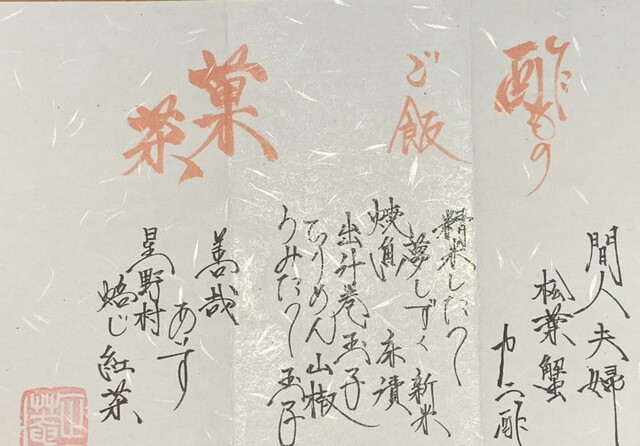 酢もの
間人夫婦
松葉蟹
カニ酢
ご飯
精米したて
夢しずく 新米
焼魚 床漬
出汁巻玉子
ちりめん山椒
うみたて玉子
菓
茶
善哉
あいす
星野村
焙じ紅茶